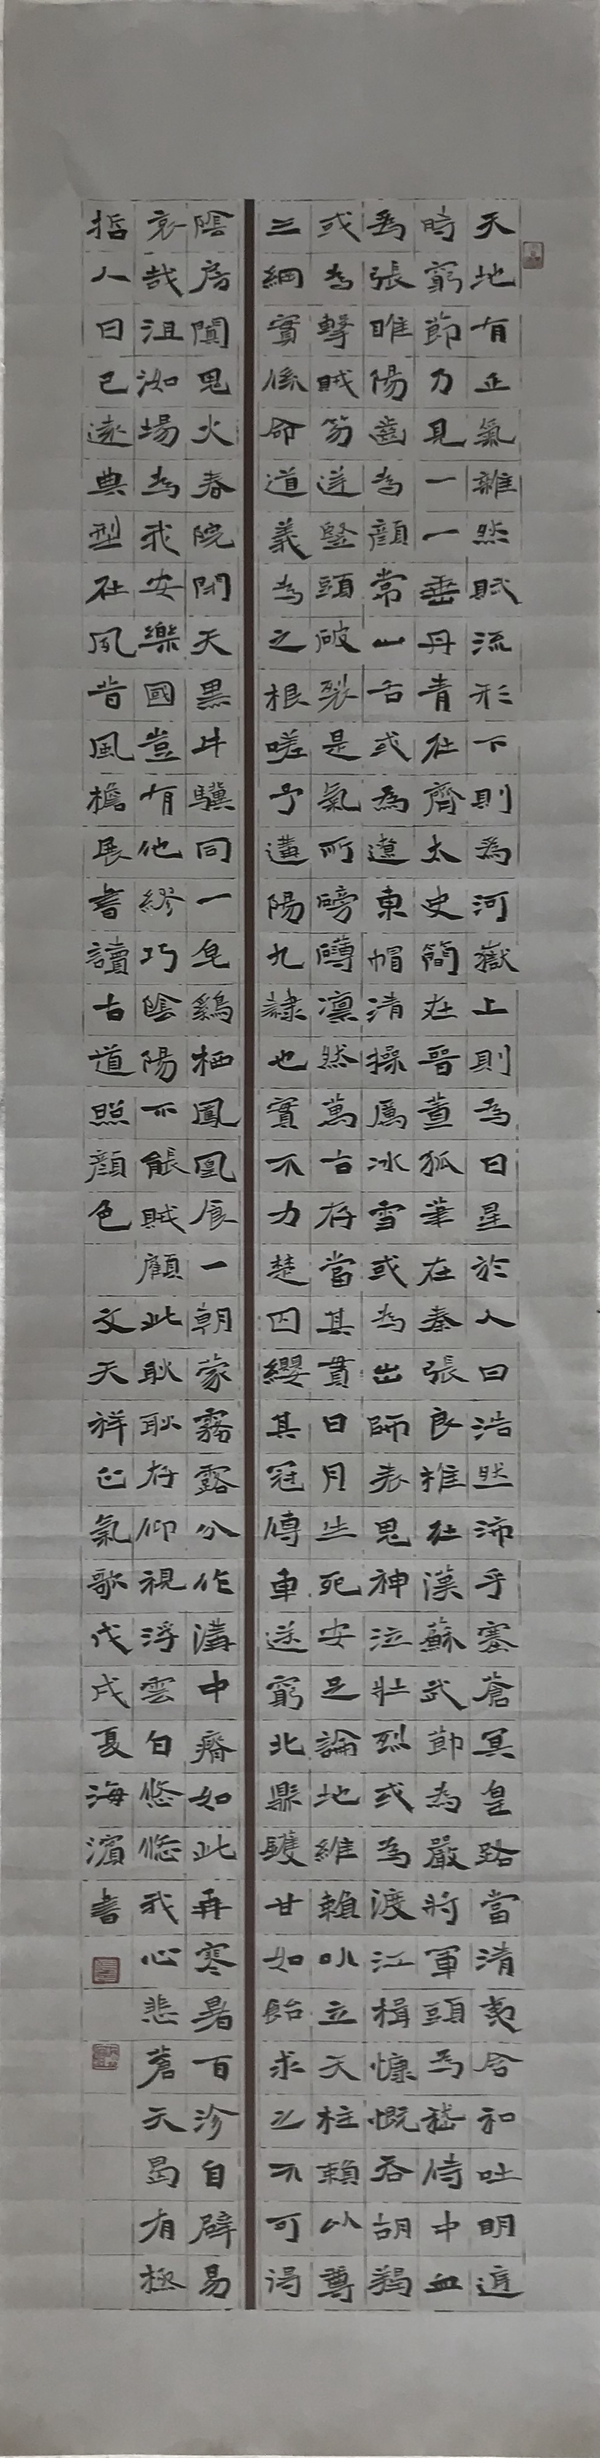 天地有正氣雜然賦流形下則為河嶽上則為日星於人曰浩然沛乎塞蒼冥皇路當清夷含和吐明庭
時窮節乃見一一垂丹青在齊太史簡在晉董狐筆在秦張良椎在漢蘇武節為嚴將軍頭為嵇侍中血
為張睢陽齒為顏常山舌或為遼東帽清操厲冰雪或為出師表鬼神泣壯烈或為渡江楫慷慨吞胡羯
或為擊賊笏逆豎頭破裂是氣所磅礴凜然萬古存當其貫日月生死安足論地維賴以立天柱賴以尊
三綱實係命道義為之根嗟予遘陽九隸也實不力楚囚纓其冠傳車送窮北鼎鑊甘如飴求之不可得
陰房闐鬼火春院閉天黑牛驥同一皂鷄栖鳳凰食一朝蒙霧露分作溝中瘠如此再寒暑百沴自辟易
哀哉沮洳場為我安樂國豈有他繆巧陰陽不能賊顧此耿耿存仰視浮雲白悠悠我心悲蒼天曷有極
哲人日已遠典型在夙昔風檐展書讀古道照顏色 文天祥正氣歌戊戌夏海濱書